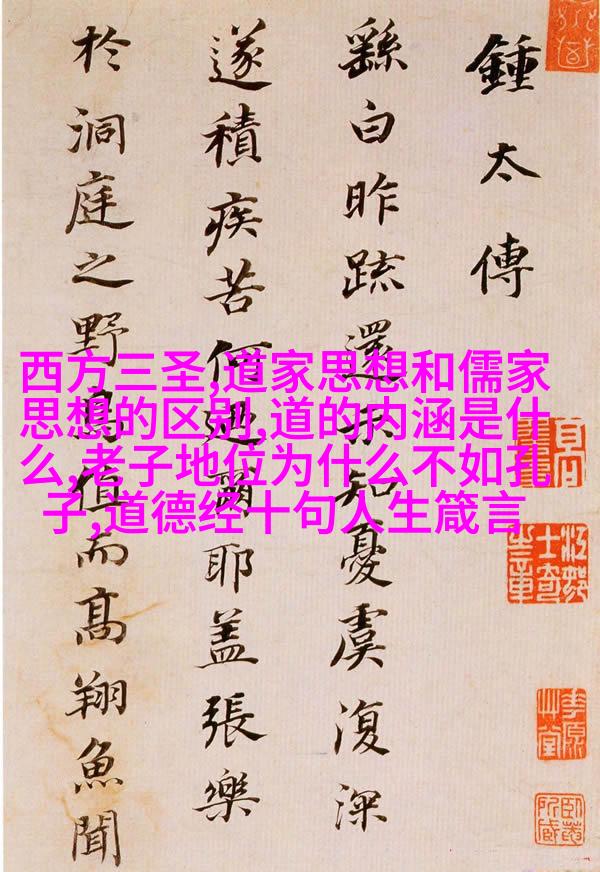 鍾太傅
繇白昨疏還知憂虞復深
遂積疾苦何迺爾耶盖張樂
於洞庭之野鳥值而髙翔魚聞
西方三圣,道家思想和儒家
思想的区别,道的内涵是什
么,老子地位为什么不如孔
子,道德经十句人生箴言